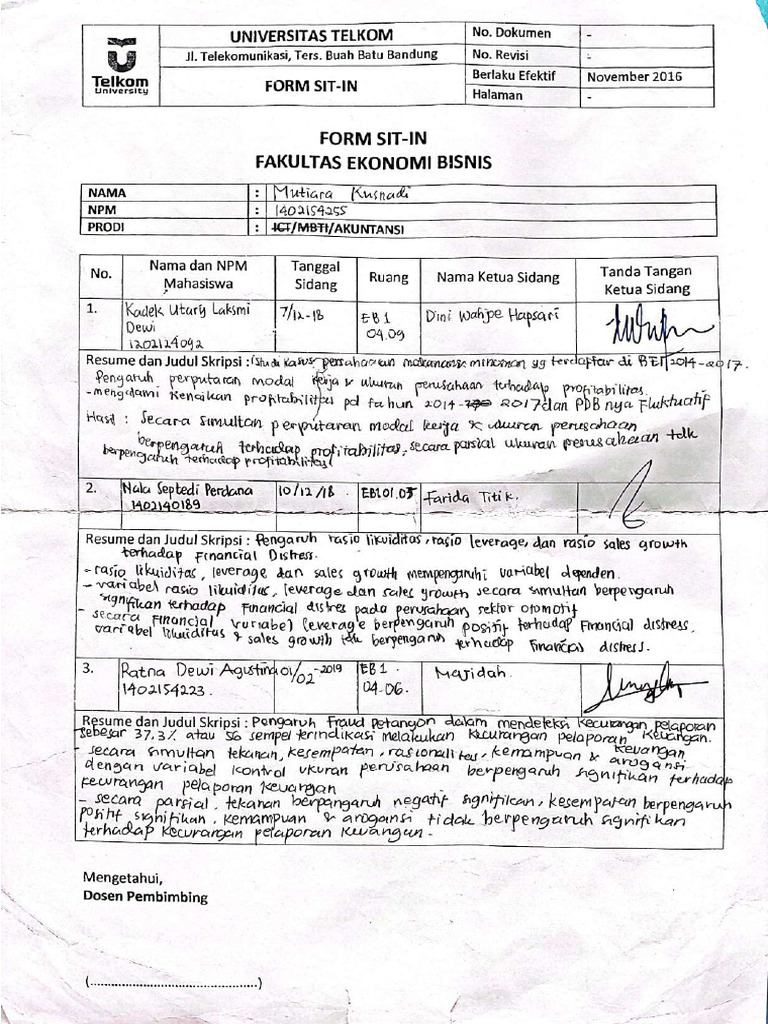 Telkom
University
UNIVERSITAS TELKOM
Jl. Telekomunikasi, Ters. Buah Batu Bandung
FORM SIT-IN
No. Dokumen -
No. Revisi -
Berlaku Efektif November 2016
Halaman -
FORM SIT-IN
FAKULTAS EKONOMI BISNIS
NAMA : Mutiara Kusnadi
NPM : 1402154255
PRODI : ICT/MBTI/AKUNTANSI
No. Nama dan NPM Mahasiswa Tanggal Sidang Ruang Nama Ketua Sidang Tanda Tangan Ketua Sidang
1. Kadek Utary Laksmi Dewi 1202124092 7/12-18 EB1 04.09 Dini Wahjoe Hapsari
Resume dan Judul Skripsi : (studi kasus perusahaan makanan & minuman yg terdaftar di BEI 2014-2017.
Pengaruh perputaran modal kerja & ukuran perusahaan terhadap profitabilitas.
- mengalami kenaikan profitabilitas pd tahun 2014- 2017 dan PDB nya Fluktuatif
Hasil : Secara simultan perputaran modal kerja & ukuran perusahaan
berpengaruh terhadap profitabilitas, secara parsial ukuran perusahaan tdk
berpengaruh terhadap profitabilitas
2. Nala Septedi Perdana 1402140189 10/12/18. EB101.05 Farida Titik.
Resume dan Judul Skripsi : Pengaruh rasio likuiditas, rasio leverage, dan rasio sales growth
terhadap Financial Distress.
- rasio likuiditas, leverage dan sales growth mempengaruhi variabel dependen.
- variabel rasio likuiditas, leverage dan sales growth secara simultan berpengaruh
signifikan terhadap Financial distres pada perusahaan sektor otomotif
- secara Financial variabel leverage berpengaruh positif terhadap Financial distress,
variabel likuiditas & sales growth tdk berpengaruh terhadap Financial distress.
3. Ratna Dewi Agustina 1402154223. 01/02-2019 EB1. 04.06. Majidah.
Resume dan Judul Skripsi : Pengaruh Fraud Petangon dalam mendeteksi kecurangan pelaporan
sebesar 37,3% atau 56 sempel terindikasi melakukan kecurangan pelaporan keuangan.
keuangan
- secara simultan tekanan, kesempatan, rasionalitas, kemampuan & arogansi
dengan variabel kontrol ukuran perusahaan berpengaruh signifikan terhadap
kecurangan pelaporan keuangan
- secara parsial, tekanan berpangaruh negatif signifikan, kesempatan berpengaruh
positif signifikan, kemampuan & arogansi tidak berpengaruh signifikan
terhadap kecurangan pelaporan keuangan.
Mengetahui,
Dosen Pembimbing
(............................................)